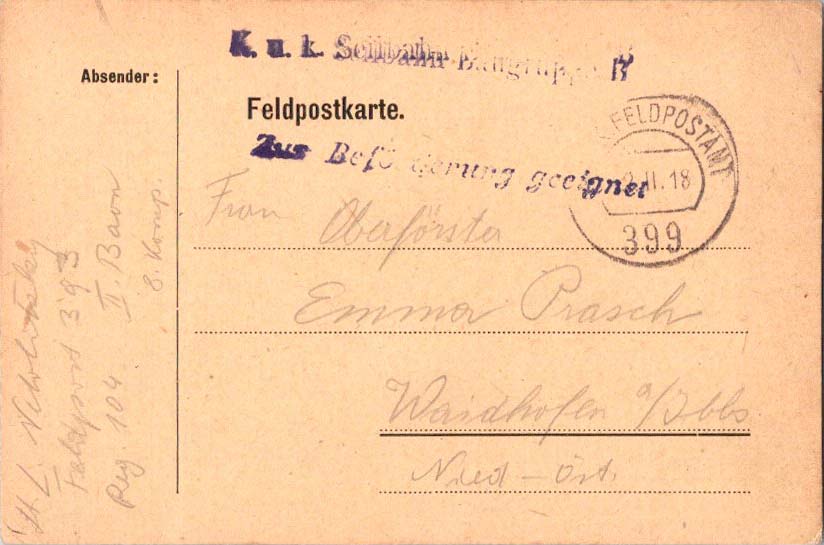 K. u. k. Seilbahn Baugruppe
Absender:
Feldpostkarte.
Zur Beförderung geeignet
FELDPOSTAMT
II.18
399
Frau Oberförster
Emma Prasch
Waidhofen a/Ybbs
Nied-Öst.
Feldpost 393
Reg. 104 II. Baon
8. Komp.